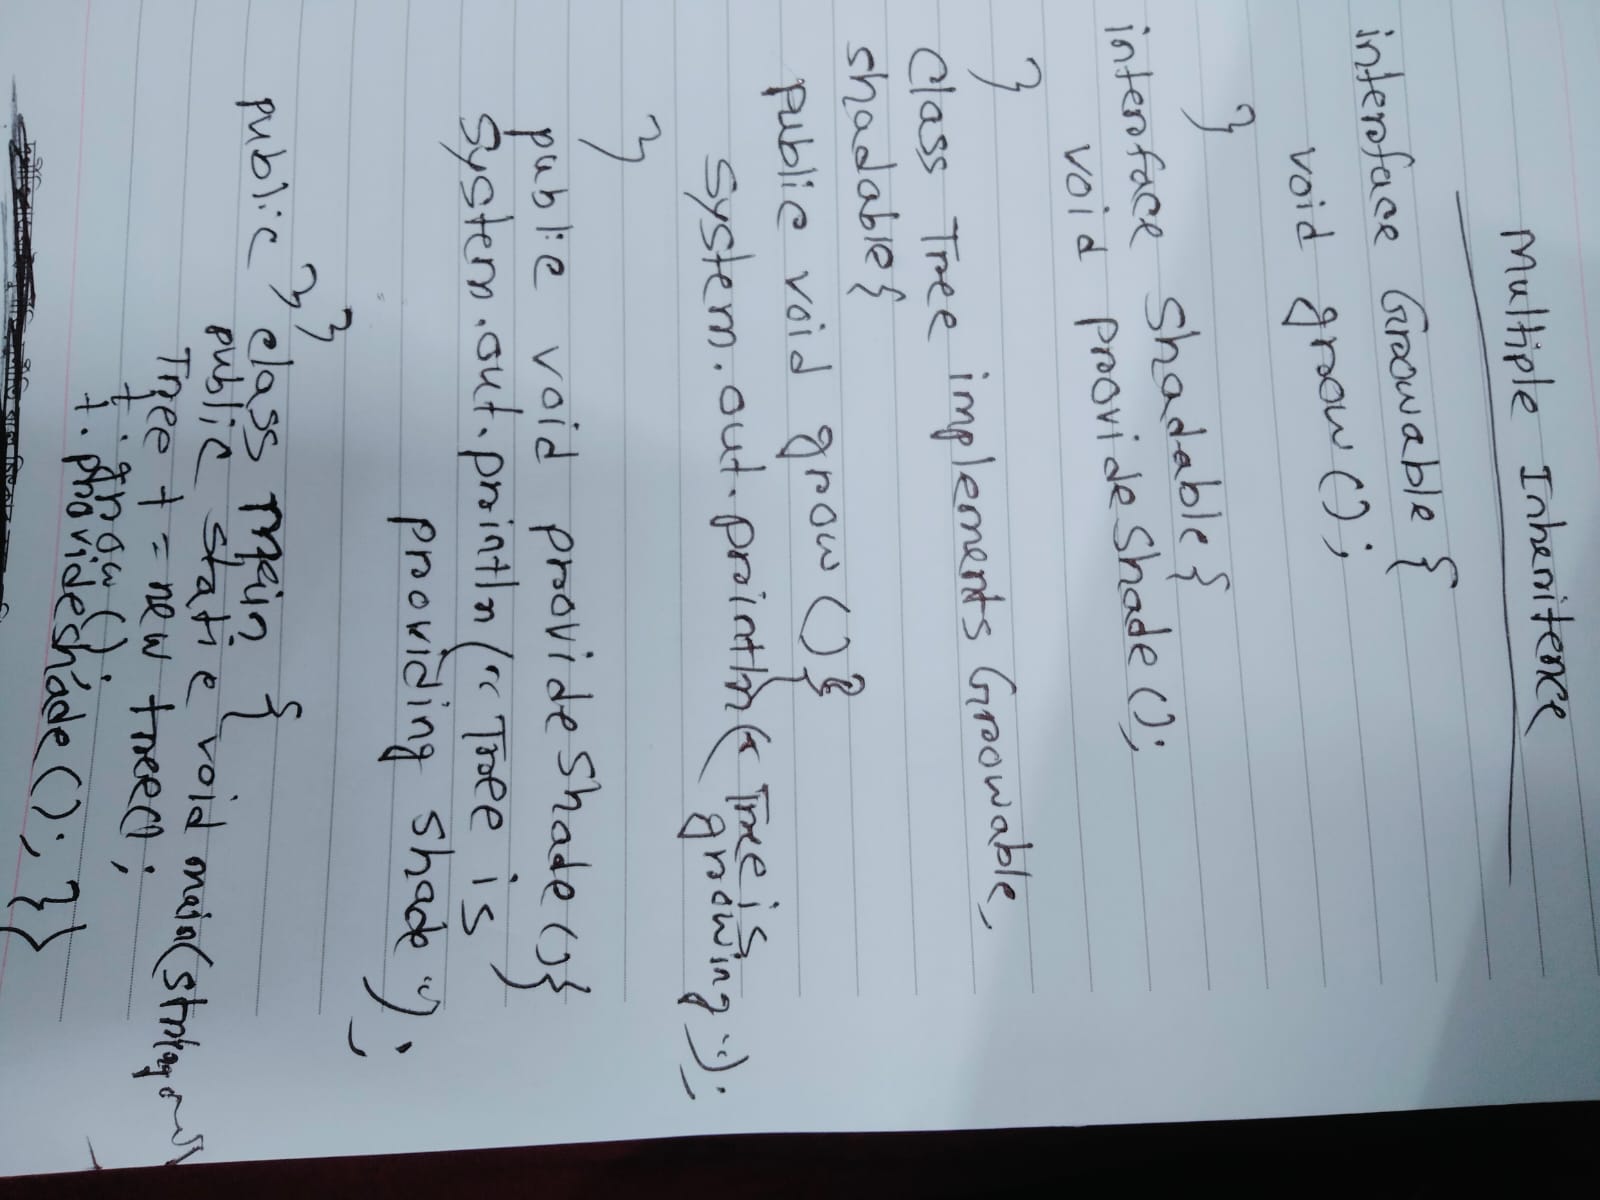 Multiple Inheritence
interface Growable {
void grow();
}
interface Shadable{
void provideShade();
}
class Tree implements Growable,
shadable{
public void grow(){
System.out.println("Tree is
growing");
}
public void provideShade(){
System.out.println("Tree is
providing shade");
}}
public class main {
public static void main(String
Tree t = new tree();
t.grow();
t.provideshade(); }}